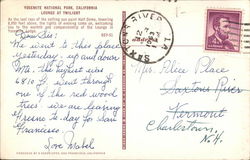 YOSEMITE NATIONAL PARK, CALIFORNIA
LOUNGE AT TWILIGHT
As the last rays of the setting sun paint Half Dome, towering
4,850 feet above, the lights of evening come on, welcoming
one to the warmth and companionship of the Lounge at
Yosemite
Dear Sis:
We went to this place
yesterday, up and down
Mts. the highest was
8100 ft. went through
one of the red wood
trees, we are leaving
Fresno to day for San
Francisco.
Love Mabel
SAXTONS RIVER
Mrs. Alice Place
Saxtons River
Vermont
Charlestown,
N.H.